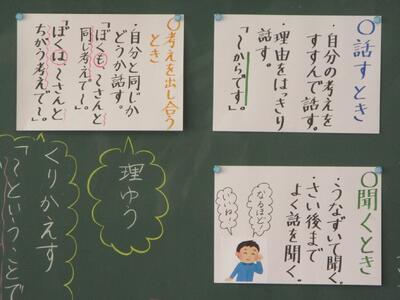 〇話すとき
・自分の考えを
すすんで話す。
・理由をはっきり
話す。
「〜からです」。
〇考えを出し合う
とき
・自分と同じか
どうか話す。
「ぼくも〜さんと
同じ考えで〜」。
「ぼくは〜さんと
ちがう考えで〜」。
〇聞くとき
・うなずいて聞く。
・さい後まで
よく話を聞く。
なるほど!
いいね。
理ゆう
くりかえす
「〜ということで